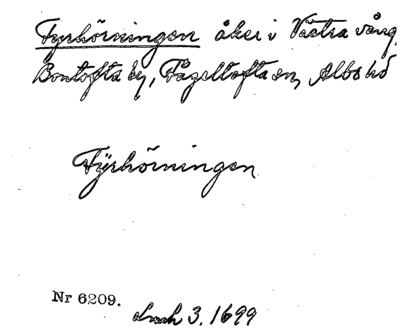 Fyrhörningen åker i Västra vång,
Bontofta by, Fågeltofta sn, Albo hd
Fÿrhörningen
Nr 6209.
3. 1699